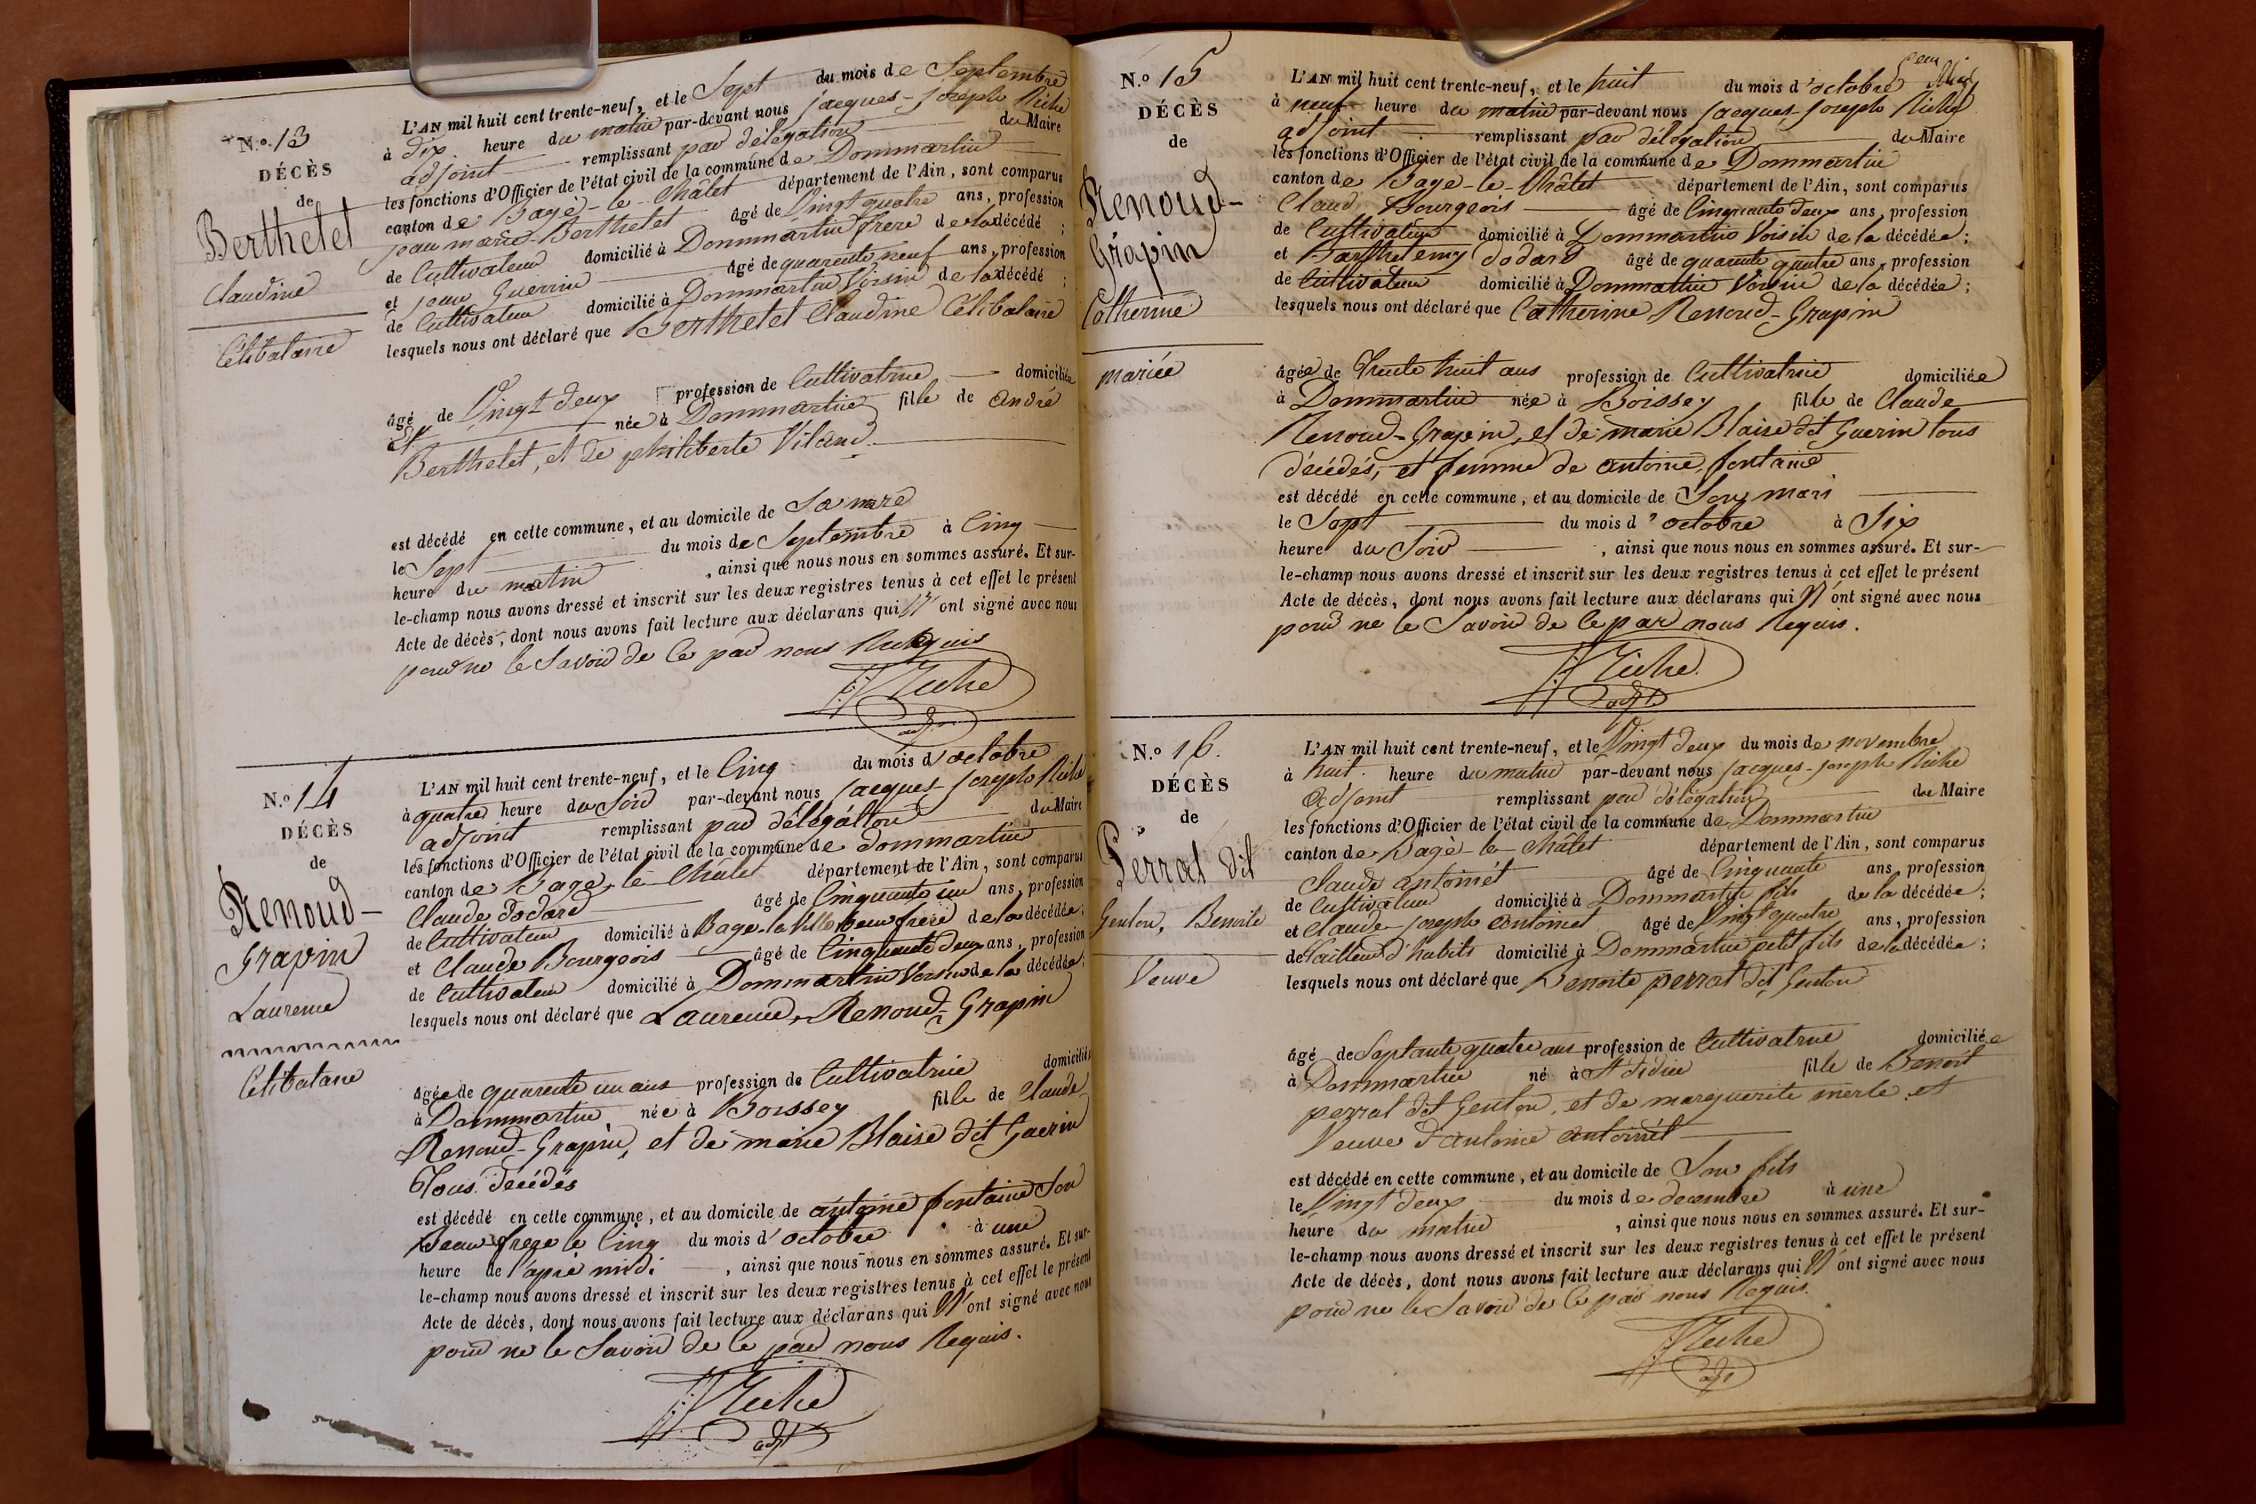 N.º 13
DÉCÈS
de
Berthelet
Claudine
Célibataire
L'AN mil huit cent trente-neuf, et le Sept du mois de Septembre
à dix heure du matin par-devant nous jacques-joseph Riche
adjoint remplissant par délégation du Maire
les fonctions d'Officier de l'état civil de la commune de Dommartin
canton de Bagé-le-Châtel département de l'Ain, sont comparus
jean marie Berthelet âgé de Vingt quatre ans, profession
de Cultivateur domicilié à Dommartin frere de la décédé ;
et jean Guerrin âgé de quarente neuf ans, profession
de Cultivateur domicilié à Dommartin Voisin de la décédé ;
lesquels nous ont déclaré que Berthelet Claudine Célibataire
âgé de Vingt deux profession de Cultivatrice domiciliée
à née à Dommartin fille de andré
Berthelet, et de philiberte Viland
est décédé en cette commune, et au domicile de Sa mere
le Sept du mois de Septembre à Cinq
heure du matin , ainsi que nous nous en sommes assuré. Et sur-
le-champ nous avons dressé et inscrit sur les deux registres tenus à cet effet le présent
Acte de décès, dont nous avons fait lecture aux déclarans qui N' ont signé avec nous
pour ne le Savoir de Ce par nous Requis
Riche
adjt
N.º 14
DÉCÈS
de
Renoud-
Grapin
Laurence
Célibataire
L'AN mil huit cent trente-neuf, et le Cinq du mois d'octobre
à quatre heure du Soir par-devant nous jacques-joseph Riche
adjoint remplissant par délégation du Maire
les fonctions d'Officier de l'état civil de la commune de dommartin
canton de Bagé-le-Châtel département de l'Ain, sont comparus
Claude dodard âgé de Cinquante un ans, profession
de Cultivateur domicilié à Bagé-la-Ville beau frere de la décédée;
et Claude Bourgeois âgé de Cinquante deux ans, profession
de Cultivateur domicilié à Dommartin Voisin de la décédée;
lesquels nous ont déclaré que Laurence, Renoud-Grapin
âgée de quarente un ans profession de Cultivatrice domiciliée
à Dommartin née à Boissey fille de Claude
Renoud-Grapin, et de marie Blaise dit Guerin
Tous décédés
est décédé en cette commune, et au domicile de antoine fontaine Son
beau frere le Cinq du mois d'octobre à une
heure de l'aprè midi , ainsi que nous nous en sommes assuré. Et sur-
le-champ nous avons dressé et inscrit sur les deux registres tenus à cet effet le présent
Acte de décès, dont nous avons fait lecture aux déclarans qui N' ont signé avec nous
pour ne le Savoir de Ce par nous Requis.
Riche
adjt
N.º 15
DÉCÈS
de
Renoud-
Grapin
Catherine
mariée
L'AN mil huit cent trente-neuf, et le huit du mois d'octobre
à neuf heure du matin par-devant nous jacques-joseph Riche
adjoint remplissant par délégation du Maire
les fonctions d'Officier de l'état civil de la commune de Dommartin
canton de Bagé-le-Châtel département de l'Ain, sont comparus
Claud Bourgeois âgé de Cinquante deux ans, profession
de Cultivateur domicilié à Dommartin Voisin de la décédée;
et Barthelemy dodard âgé de quarante quatre ans, profession
de Cultivateur domicilié à Dommartin Voisin de la décédée;
lesquels nous ont déclaré que Catherine Renoud-Grapin
âgée de Trente huit ans profession de Cultivatrice domiciliée
à Dommartin née à Boissey fille de Claude
Renoud-Grapin, et de marie Blaise dit Guerin tous
décédés, et femme de antoine fontaine
est décédé en cette commune, et au domicile de Son mari
le Sept du mois d'octobre à Six
heure du Soir , ainsi que nous nous en sommes assuré. Et sur-
le-champ nous avons dressé et inscrit sur les deux registres tenus à cet effet le présent
Acte de décès, dont nous avons fait lecture aux déclarans qui N' ont signé avec nous
pour ne le Savoir de Ce par nous Requis.
Riche
adjt
N.º 16.
DÉCÈS
de
Perrat dit
Genton, Benoite
Veuve
L'AN mil huit cent trente-neuf, et le Vingt deux du mois de novembre
à huit heure du matin par-devant nous jacques-joseph Riche
adjoint remplissant par délégation du Maire
les fonctions d'Officier de l'état civil de la commune de Dommartin
canton de Bagé-le-Châtel département de l'Ain, sont comparus
Claude antoinet âgé de Cinquante ans, profession
de Cultivateur domicilié à Dommartin fils de la décédée;
et Claude-joseph antoinet âgé de Vingt quatre ans, profession
de tailleur d'habits domicilié à Dommartin petit fils de la décédée;
lesquels nous ont déclaré que Benoite perrat dit Genton
âgé de Septante quatre ans profession de Cultivatrice domiciliée
à Dommartin né à St didier fille de Benoit
perrat dit Genton, et de marguerite merle et
Veuve d'antoine antoinet
est décédé en cette commune, et au domicile de Son fils
le Vingt deux du mois de decembre à une
heure du matin , ainsi que nous nous en sommes assuré. Et sur-
le-champ nous avons dressé et inscrit sur les deux registres tenus à cet effet le présent
Acte de décès, dont nous avons fait lecture aux déclarans qui N' ont signé avec nous
pour ne le Savoir de Ce par nous Requis.
Riche
adjt